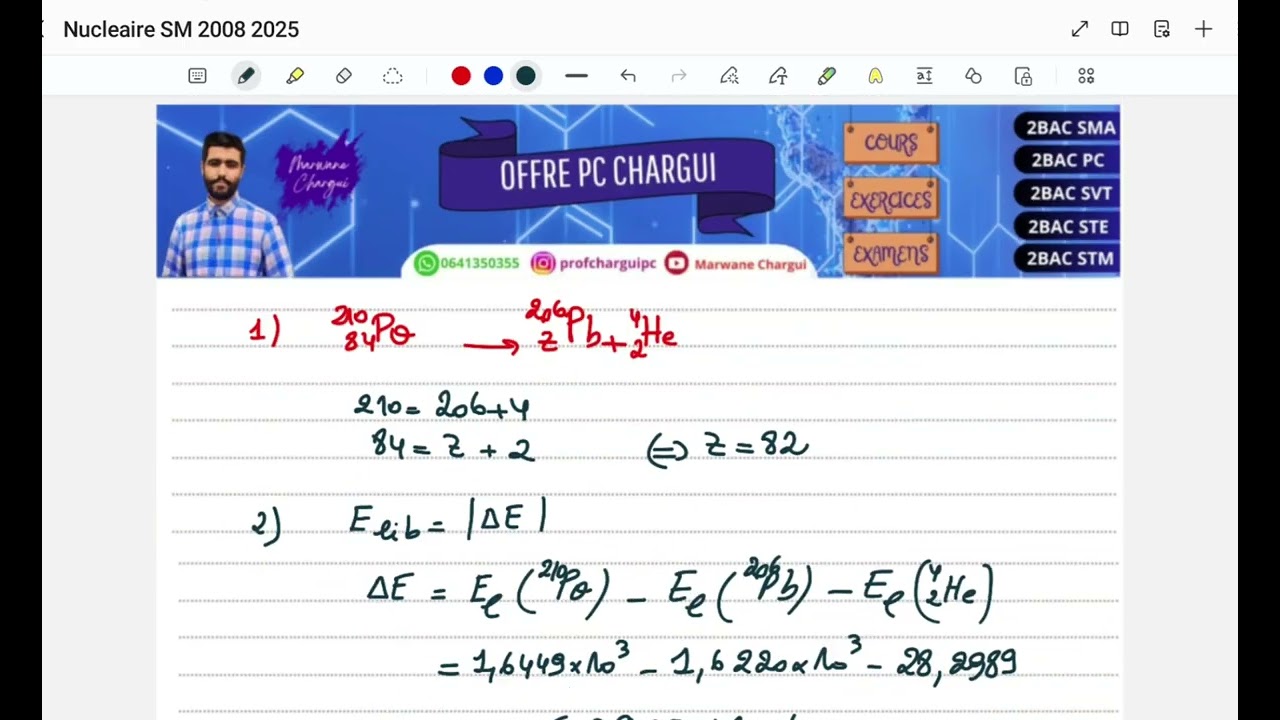 Nucleaire SM 2008 2025
Marwane
Chargui
OFFRE PC CHARGUI
COURS
EXERCICES
EXAMENS
2BAC SMA
2BAC PC
2BAC SVT
2BAC STE
2BAC STM
0641350355 profcharguipc Marwane Chargui
1) ²¹⁰₈₄Po → ²⁰⁶_Z Pb + ⁴₂He
210 = 206 + 4
84 = Z + 2 ⇔ Z = 82
2) E_lib = |ΔE|
ΔE = Eℓ(²¹⁰Po) − Eℓ(²⁰⁶Pb) − Eℓ(⁴₂He)
= 1,6449×10³ − 1,6220×10³ − 28,2989